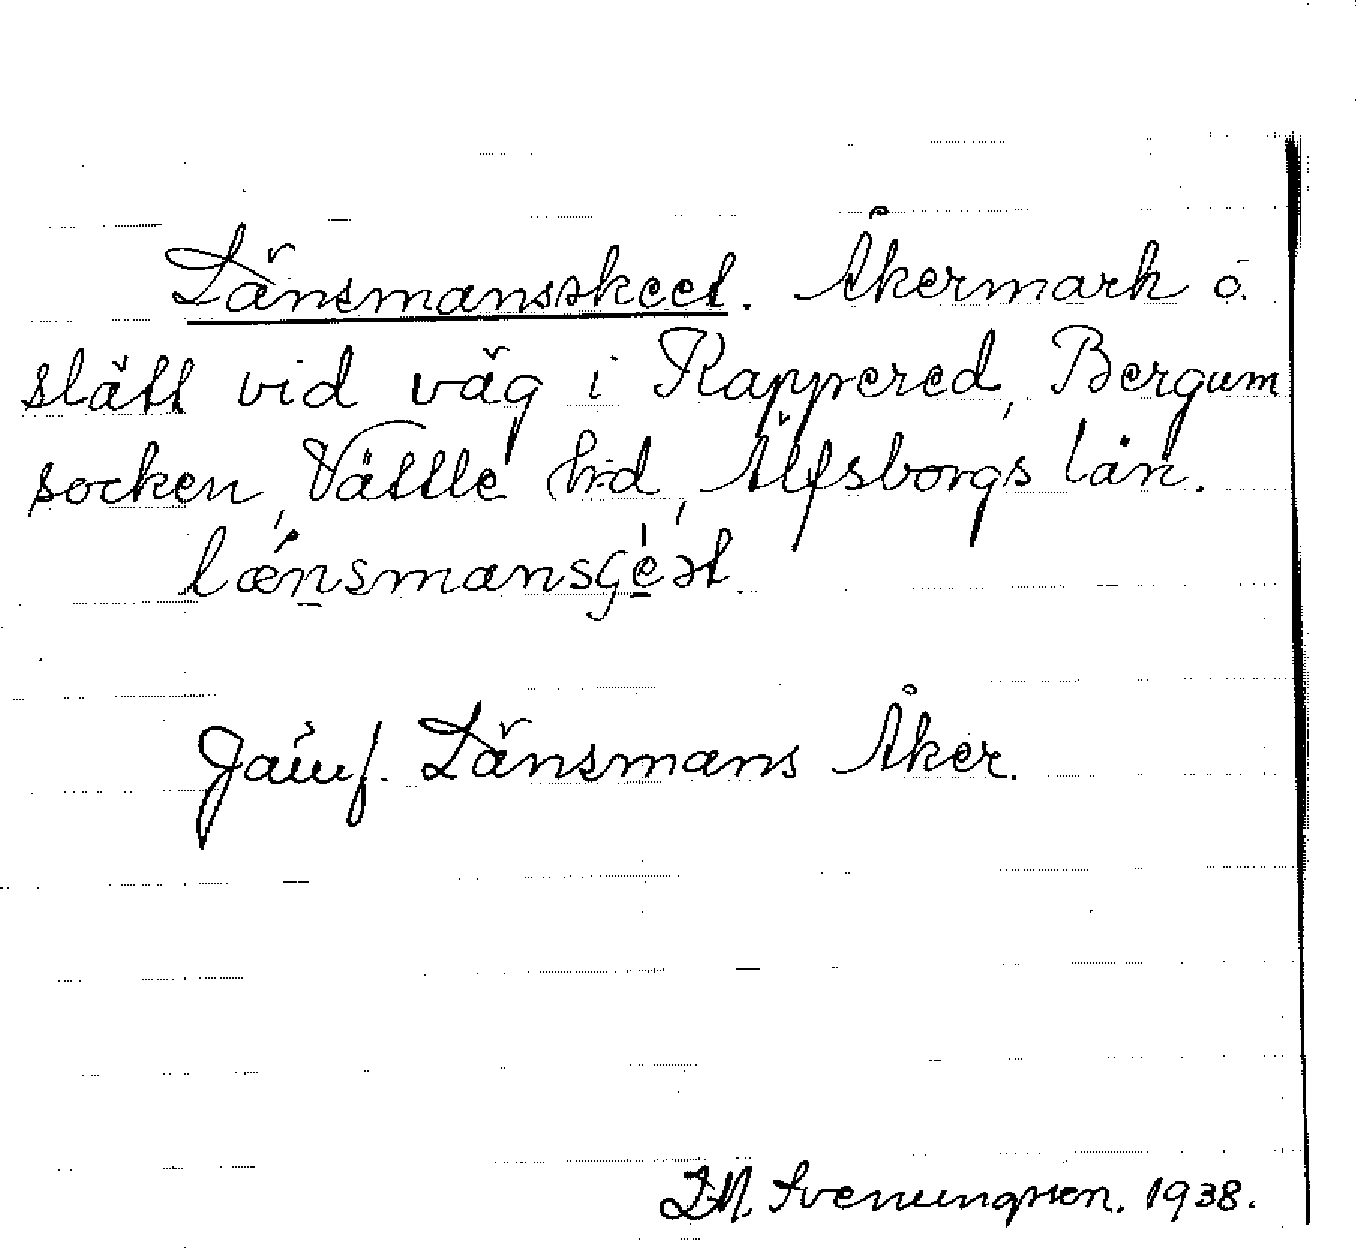 Länsmansskeet. Åkermark o.
slätt vid väg i Rappered, Bergum
socken, Vättle hd, Älfsborgs län.
Jämf. Länsmans Åker.
Svenungsson. 1938.